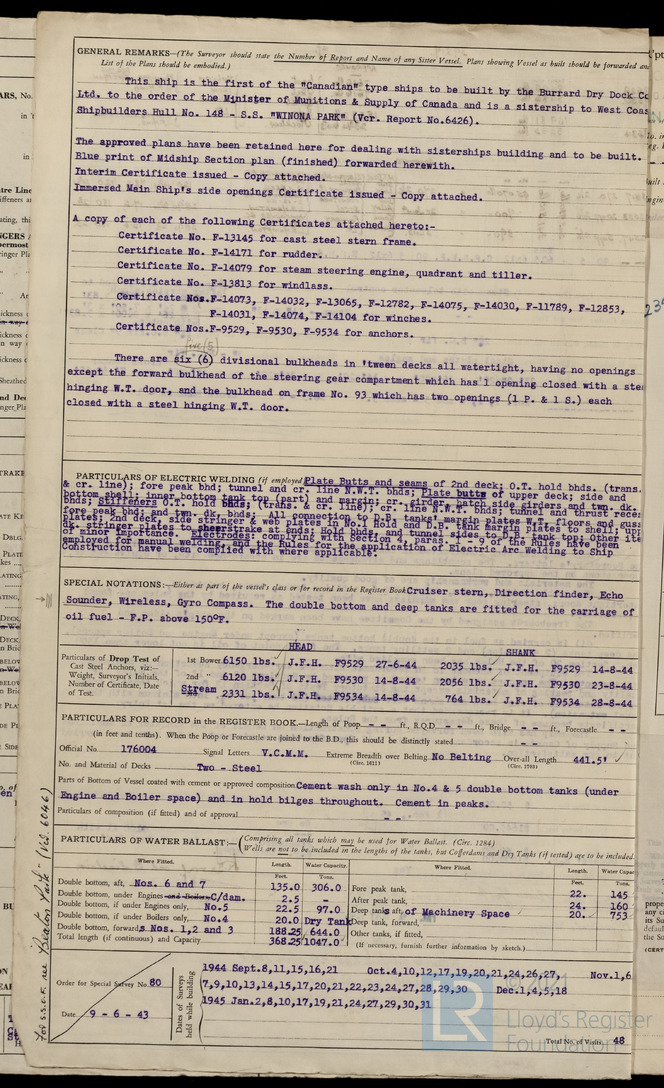 GENERAL REMARKS—(The Surveyor should state the Number of Report and Name of any Sister Vessel. Plans showing Vessel as built should be forwarded an
List of the Plans should be embodied.)
This ship is the first of the "Canadian" type ships to be built by the Burrard Dry Dock Co
Ltd. to the order of the Minister of Munitions & Supply of Canada and is a sistership to West Coas
Shipbuilders Hull No. 148 - S.S. "WINONA PARK" (Vcr. Report No.6426).
The approved plans have been retained here for dealing with sisterships building and to be built.
Blue print of Midship Section plan (finished) forwarded herewith.
Interim Certificate issued - Copy attached.
Immersed Main Ship's side openings Certificate issued - Copy attached.
A copy of each of the following Certificates attached hereto:-
Certificate No. F-13145 for cast steel stern frame.
Certificate No. F-14171 for rudder.
Certificate No. F-14079 for steam steering engine, quadrant and tiller.
Certificate No. F-13813 for windlass.
Certificate Nos.F-14073, F-14032, F-13065, F-12782, F-14075, F-14030, F-11789, F-12853,
F-14031, F-14074, F-14104 for winches.
Certificate Nos.F-9529, F-9530, F-9534 for anchors.
five (5)
There are six (6) divisional bulkheads in 'tween decks all watertight, having no openings
except the forward bulkhead of the steering gear compartment which has 1 opening closed with a stee
hinging W.T. door, and the bulkhead on frame No. 93 which has two openings (1 P. & 1 S.) each
closed with a steel hinging W.T. door.
PARTICULARS OF ELECTRIC WELDING (if employed) Plate Butts and seams of 2nd deck; O.T. hold bhds. (trans.
& cr. line); fore peak bhd; tunnel and cr. line N.W.T. bhds; Plate butts of upper deck; side and
bottom shell; inner bottom tank top (part) and margin; cr. girder, hatch side girders and twn. dk.
bhds; Stiffeners O.T. hold bhds; (trans. & cr. line); cr. line N.W.T. bhds; tunnel and thrust rece
fore peak bhd; and twn. dk. bhds; All connection to D.B. tanks' margin plates W.T. floors and gus
plates; 2nd deck, side stringer & web plates in No.1 Hold and D.B. tank margin plates to shell; upp
dk. stringer plates to sheerstrake at ends; Hold bhds and tunnel sides to D.B. tank top; Other ite
of minor importance. Electrodes: complying with Section 4, paras. 1 - 9 of the Rules have been
employed for manual welding, and the Rules for the application of Electric Arc Welding to Ship
Construction have been complied with where applicable.
SPECIAL NOTATIONS:—Either as part of the vessel's class or for record in the Register Book Cruiser stern, Direction finder, Echo
Sounder, Wireless, Gyro Compass. The double bottom and deep tanks are fitted for the carriage of
oil fuel - F.P. above 150°F.
HEAD SHANK
Particulars of Drop Test of Cast Steel Anchors, viz:— Weight, Surveyor's Initials, Number of Certificate, Date of Test.
1st Bower 6150 lbs. J.F.H. F9529 27-6-44 2035 lbs. J.F.H. F9529 14-8-44
2nd " 6120 lbs. J.F.H. F9530 14-8-44 2056 lbs. J.F.H. F9530 23-8-44
Stream 2331 lbs. J.F.H. F9534 14-8-44 764 lbs. J.F.H. F9534 28-8-44
PARTICULARS FOR RECORD in the REGISTER BOOK.—Length of Poop - - ft., R.Q.D. - - ft., Bridge - - ft., Forecastle - -
(in feet and tenths). When the Poop or Forecastle are joined to the B.D., this should be distinctly stated - -
Official No. 176004 Signal Letters V.C.M.M. Extreme Breadth over Belting No Belting Over-all Length 441.5'
(Circ. 1611) (Circ. 1703)
No. and Material of Decks Two - Steel
Parts of Bottom of Vessel coated with cement or approved composition Cement wash only in No.4 & 5 double bottom tanks (under
Engine and Boiler space) and in hold bilges throughout. Cement in peaks.
Particulars of composition (if fitted) and of approval - -
PARTICULARS OF WATER BALLAST:—(Comprising all tanks which may be used for Water Ballast. (Circ. 1284)
Wells are not to be included in the lengths of the tanks, but Cofferdams and Dry Tanks (if tested) are to be included
Where Fitted. Length. Water Capacity. Where Fitted. Length. Water Capac
Feet. Tons. Feet. Tons.
Double bottom, aft, Nos. 6 and 7 135.0 306.0 Fore peak tank, 22. 145
Double bottom, under Engines and Boilers, C/dam. 2.5 - After peak tank, 24. 160
Double bottom, if under Engines only, No.5 22.5 97.0 Deep tanks aft, of Machinery Space 20. 753
Double bottom, if under Boilers only, No.4 20.0 Dry Tank Deep tank, forward,
Double bottom, forward, Nos. 1,2 and 3 188.25 644.0 Other tanks, if fitted,
Total length (if continuous) and Capacity 368.25 1047.0 (If necessary, furnish further information by sketch.)
Order for Special Survey No. 80
Date 9 - 6 - 43
Dates of Surveys held while building
1944 Sept.8,11,15,16,21 Oct.4,10,12,17,19,20,21,24,26,27, Nov.1,6
7,9,10,13,14,15,17,20,21,22,23,24,27,28,29,30 Dec.1,4,5,18
1945 Jan.2,8,10,17,19,21,24,27,29,30,31
Total No. of Visits 48
For S.S.O.F. see "Beaton Park" (Vcr. 6046)
LR
Lloyd's Register
Foundation